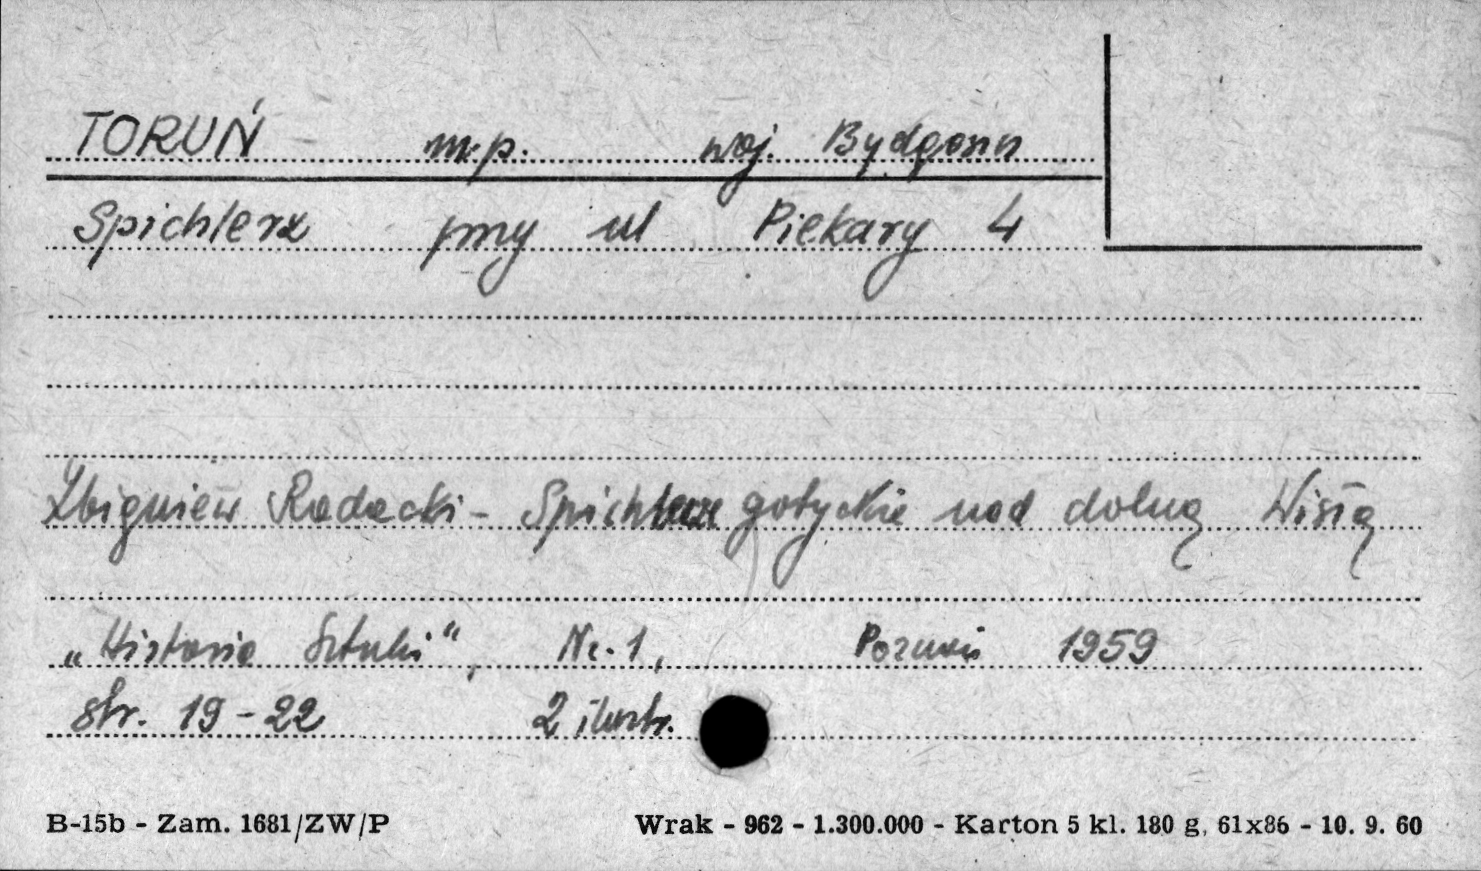 TORUŃ m.p. woj. Bydgoszcz
Spichlerz przy ul Piekary 4
Zbigniew Radacki - Spichlerze gotyckie nad dolną Wisłą
„Historia Sztuki“, Nr. 1, Poznań 1959
str. 19-22 2 ilustr.
B-15b - Zam. 1681/ZW/P Wrak - 962 - 1.300.000 - Karton 5 kl. 180 g, 61x86 - 10. 9. 60